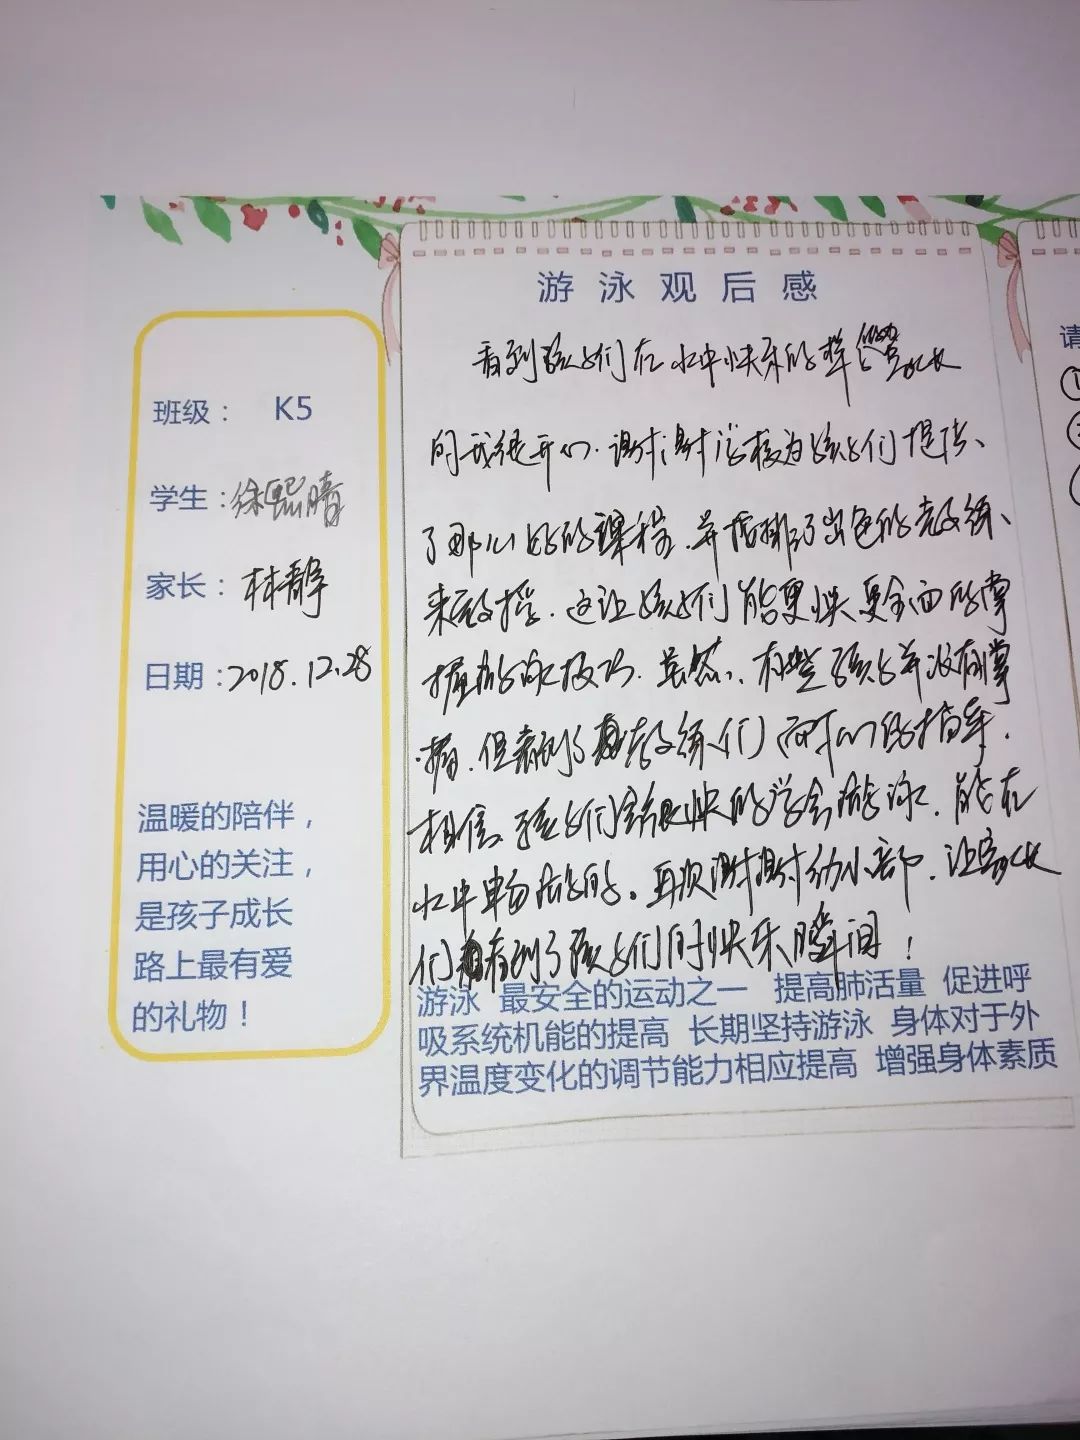 班级： K5
学生：徐熙晴
家长：林静
日期：2018.12.28
温暖的陪伴，
用心的关注，
是孩子成长
路上最有爱
的礼物！
游泳观后感
看到孩子们在水中快乐的样 家长
的我很开心.谢谢学校为孩子们提供
了那么好的课程.并安排了出色的教练
来教授.这让孩子们能更快更全面的掌
握游泳技巧.虽然、有些孩子并没有掌
握.但看到了教练们耐心的指导.
相信孩子们会很快的学会游泳.能在
水中畅游的。再次谢谢幼小部.让家长
们看到了孩子们的快乐瞬间！
游泳 最安全的运动之一 提高肺活量 促进呼
吸系统机能的提高 长期坚持游泳 身体对于外
界温度变化的调节能力相应提高 增强身体素质
请